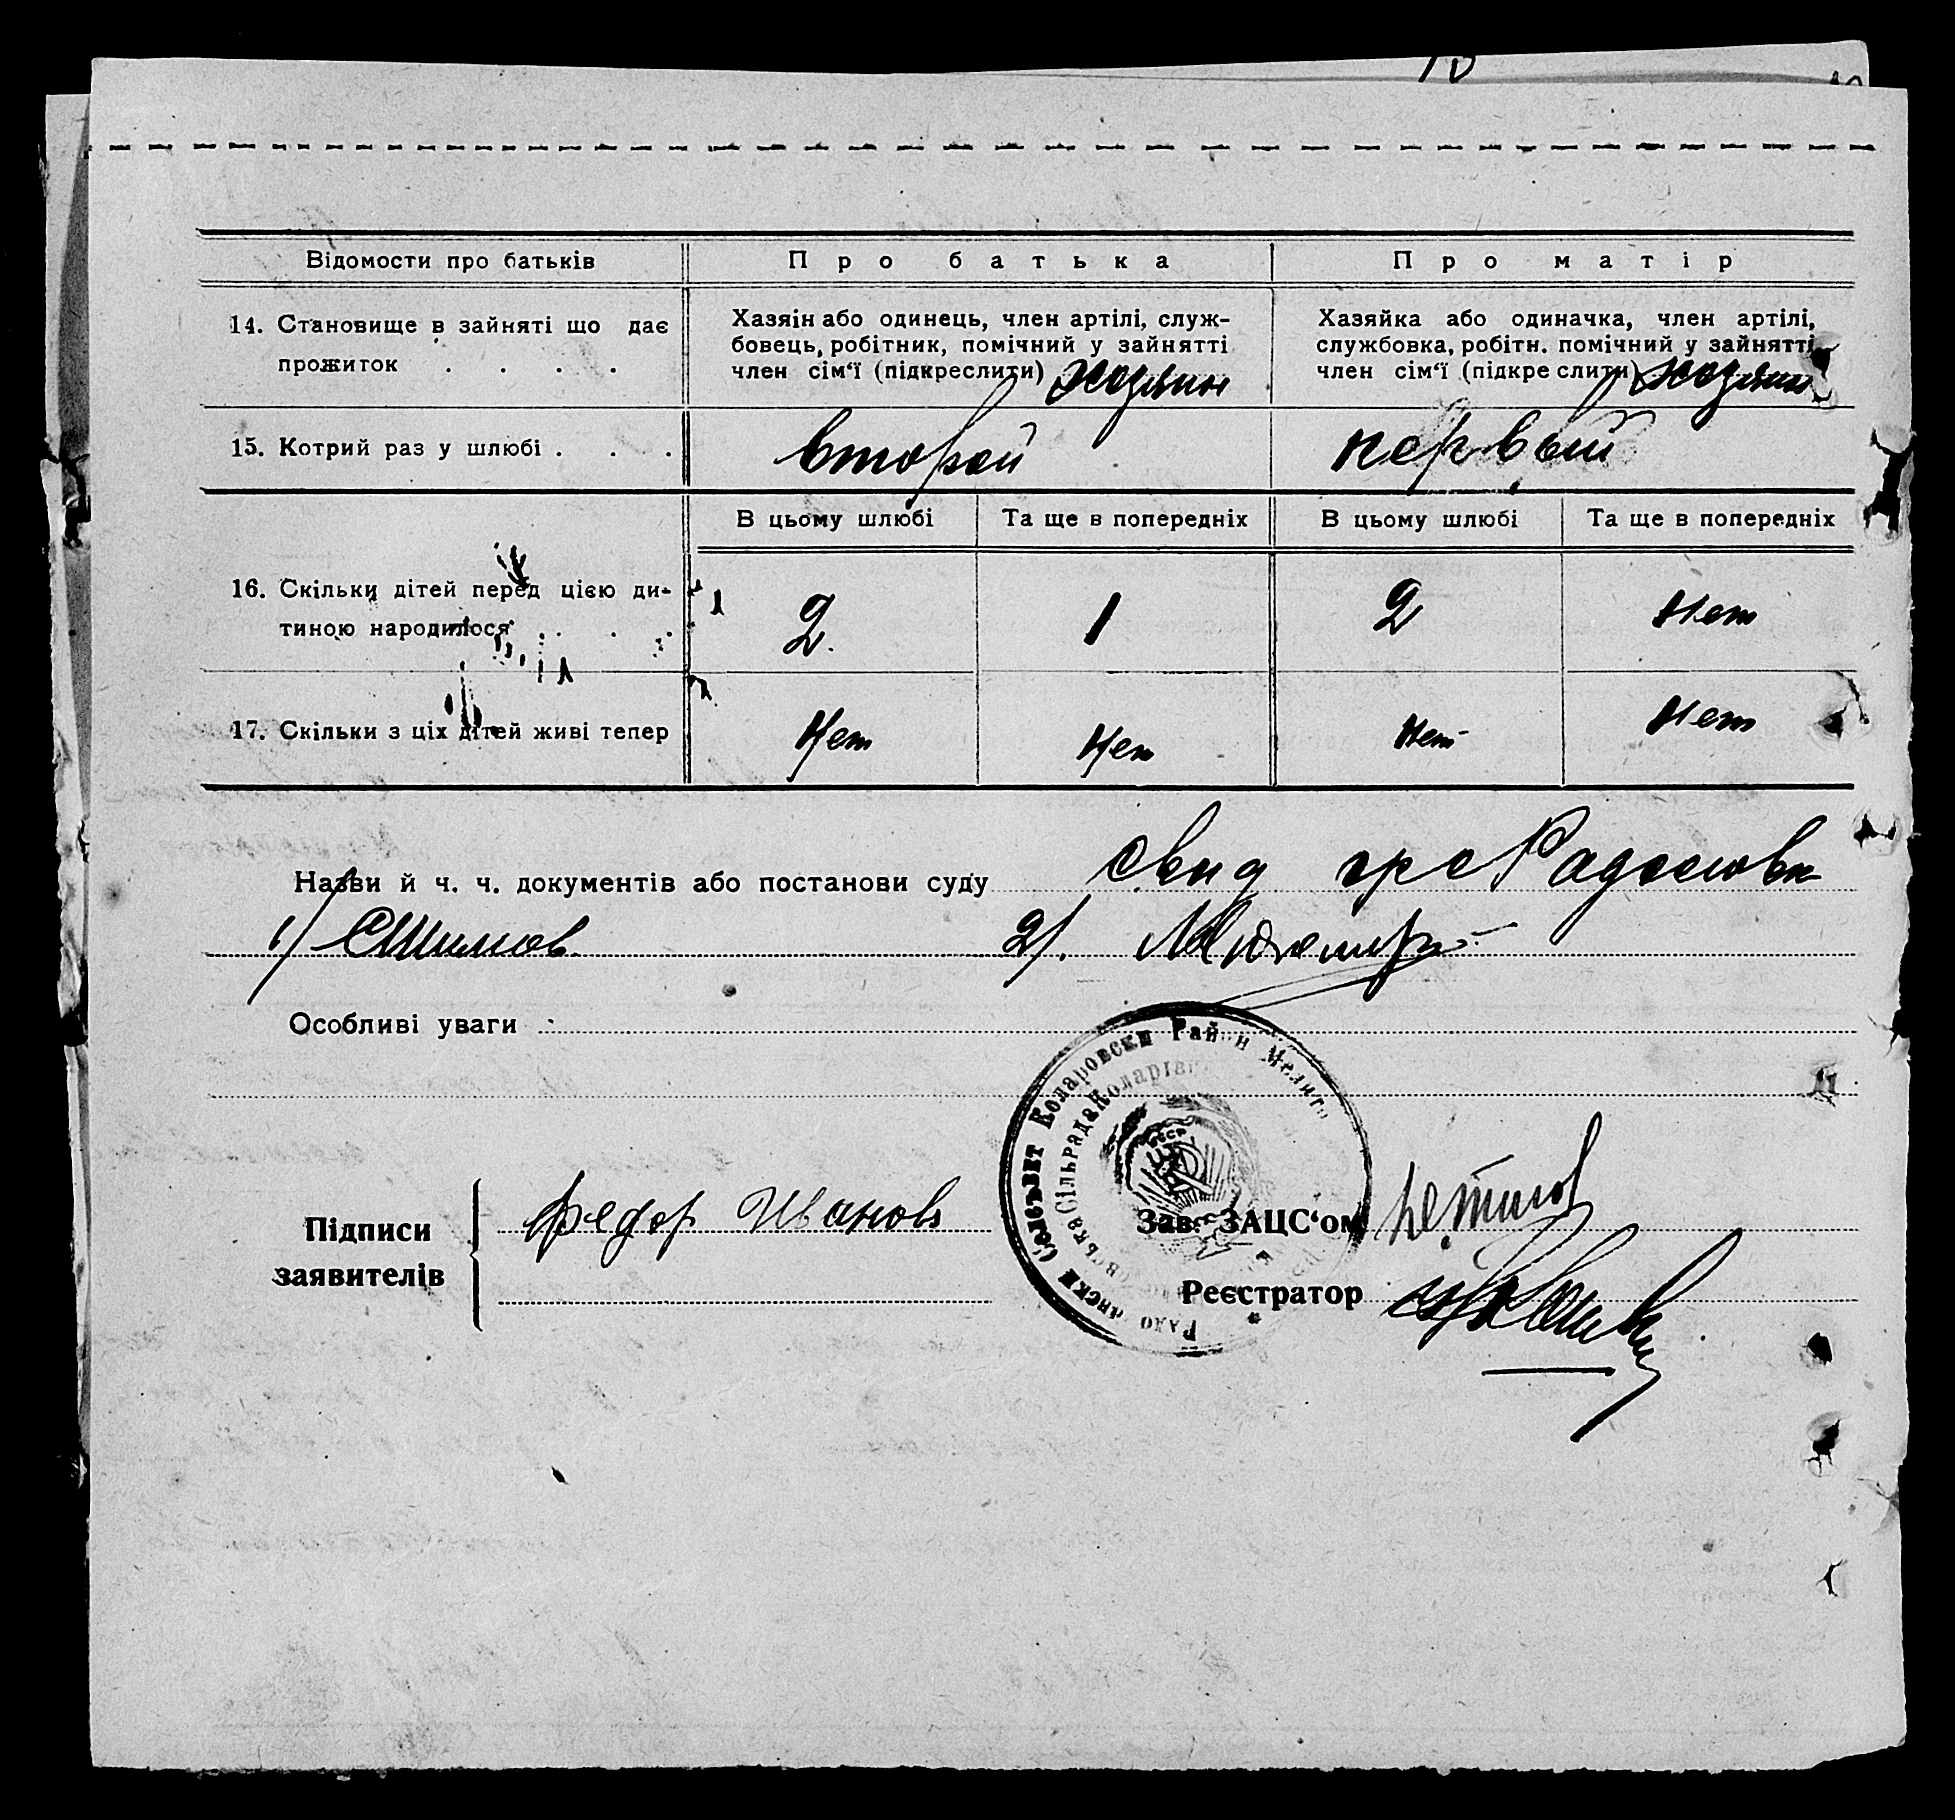 Відомости про батьків
Про батька
Про матір
14. Становище в зайняті що дає
прожиток . . . .
Хазяін або одинець, член артілі, служ-
бовець, робітник, помічний у зайнятті
член сім‘ї (підкреслити) хозяин
Хазяйка або одиначка, член артілі,
службовка, робітн. помічний у зайнятті
член сім‘ї (підкреслити) хозяин
15. Котрий раз у шлюбі . . .
второй
первый
В цьому шлюбі
Та ще в попередніх
В цьому шлюбі
Та ще в попередніх
16. Скільки дітей перед цією ди-
тиною народилося . . .
2
1
2
Нет
17. Скільки з ціх дітей живі тепер
Нет
Нет
Нет
Нет
Назви й ч. ч. документів або постанови суду Свид
1/
2/.
Особливі уваги
Підписи
заявителів
Федор Иванов
Зав. ЗАЦС‘ом
Реєстратор
Сельвет Коларовски Район Мелит
Сільрада Коларів
УССР